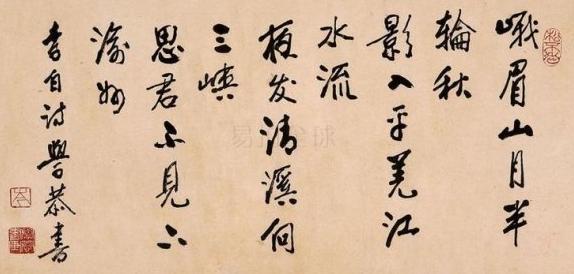 峨眉山月半
輪秋
影入平羌江
水流
夜发清溪向
三峽
思君不見下
渝州
李白诗學恭書
易拍全球